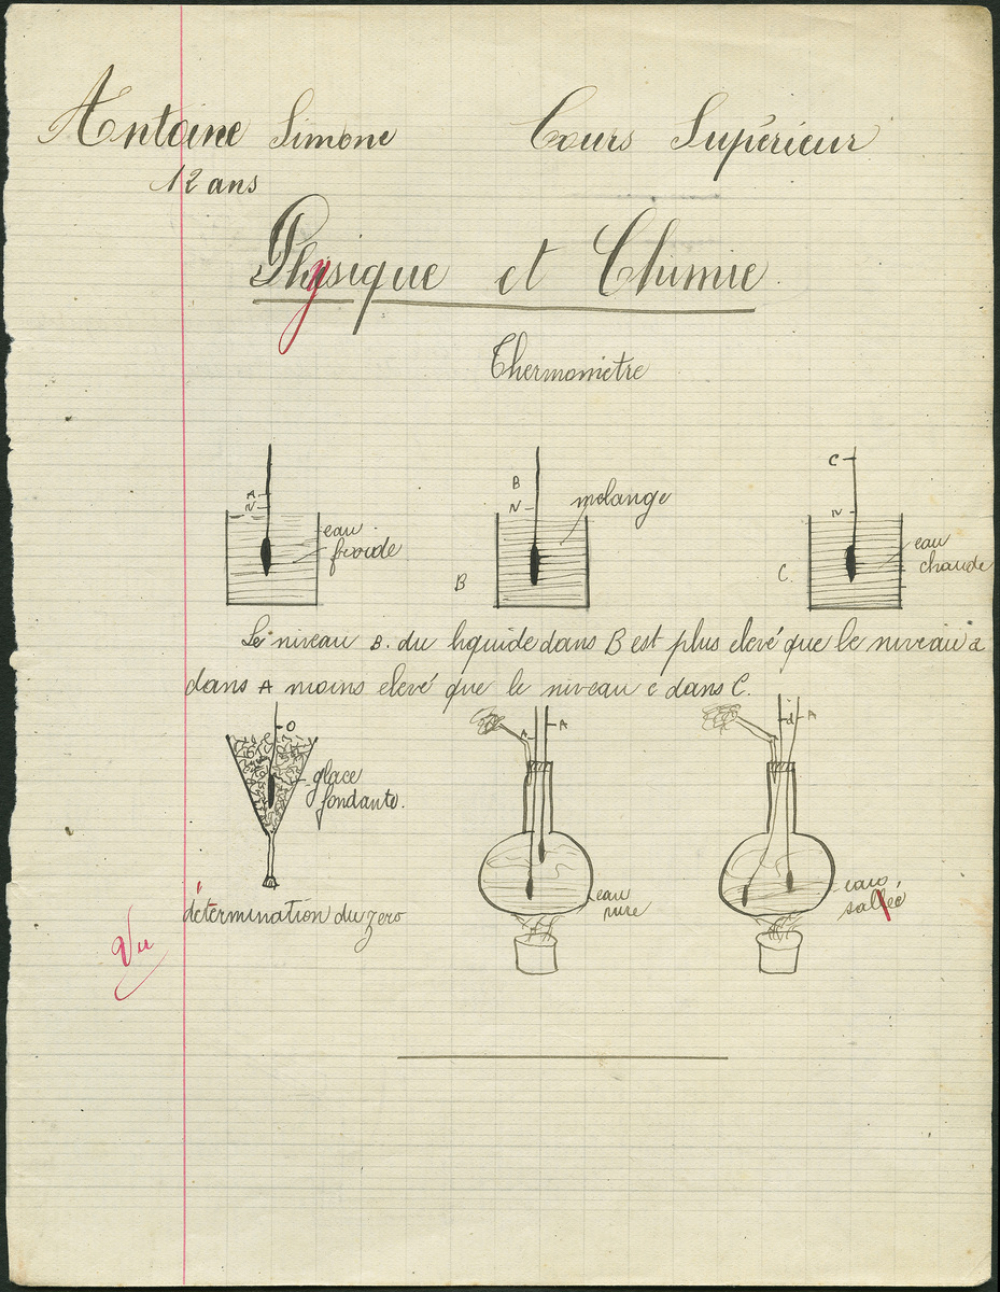 Antoine Simone Cours Supérieur
12 ans
Physique et Chimie
Thermomètre
A
N
eau
froide
B
N
mélange
B
C
N
eau
chaude
C.
Le niveau B. du liquide dans B est plus elevé que le niveau a
dans A moins elevé que le niveau c dans C.
O
glace
fondante.
détermination du zero
A
A
eau
pure
d
A
eau
sallée
Vu